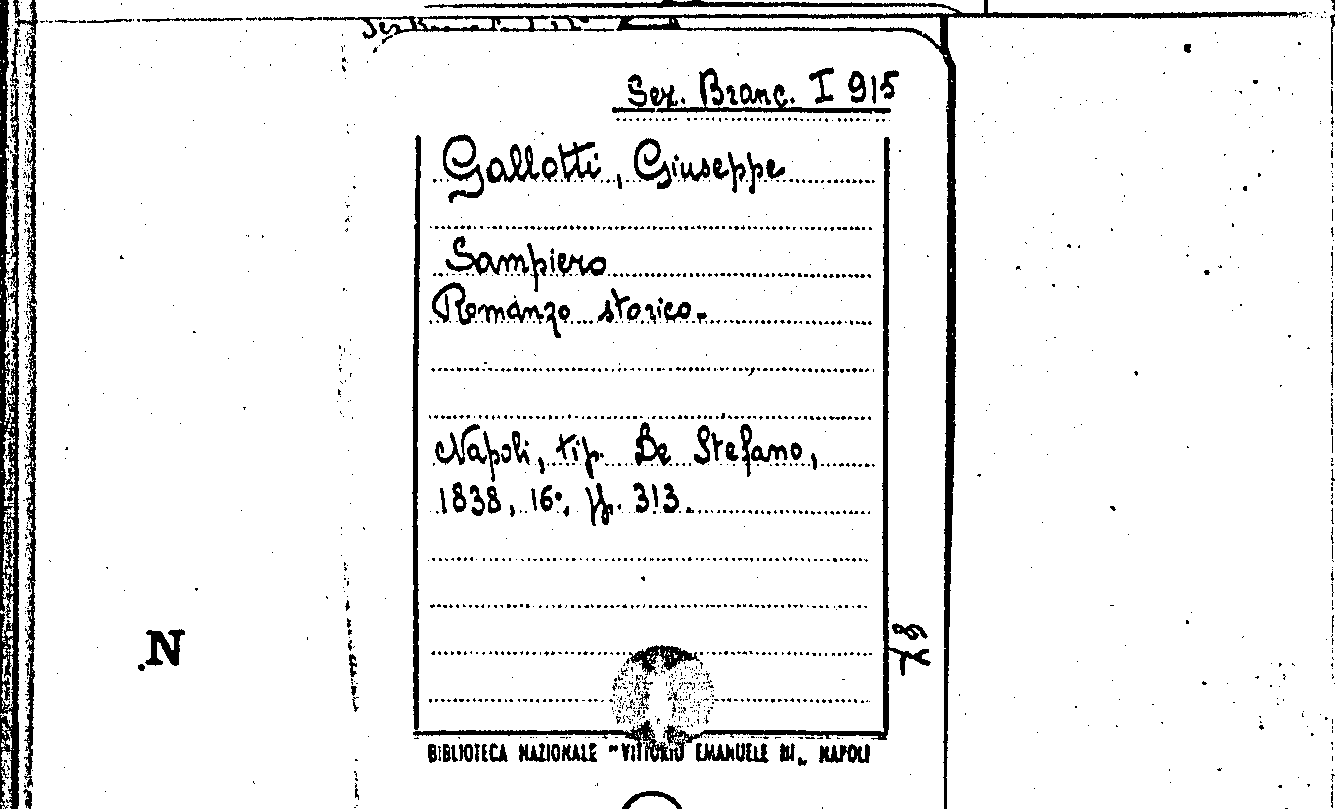 Sez. Branc. I 915
Gallotti, Giuseppe
Sampiero
Romanzo storico.
Napoli, tip. De Stefano,
1838, 16°, pp. 313.
78
N
BIBLIOTECA NAZIONALE "VITTORIO EMANUELE III„ NAPOLI